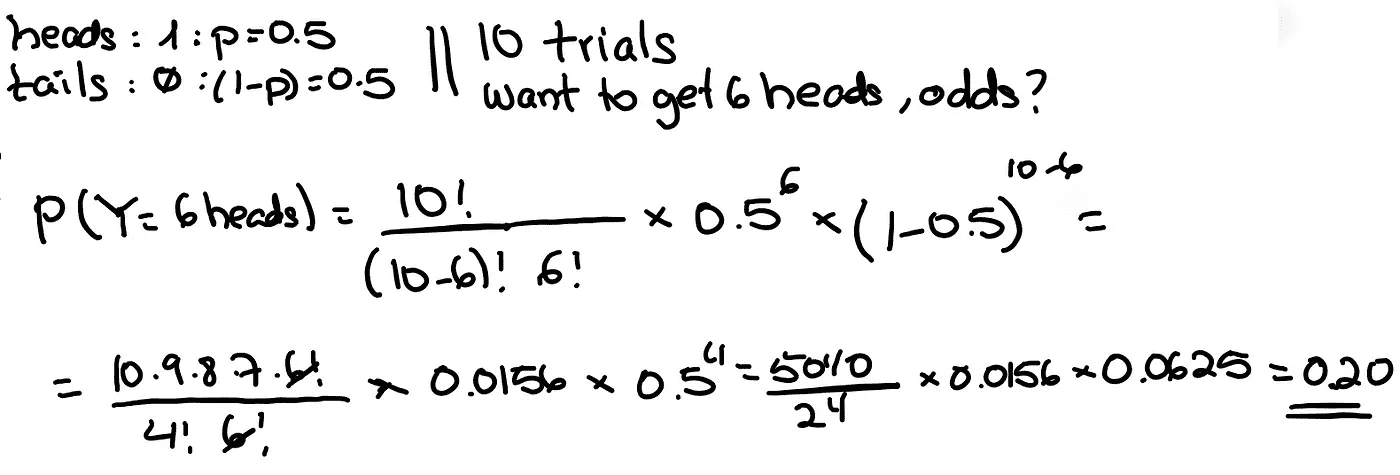 heads : 1 : p=0.5 || 10 trials
tails : 0 : (1-p)=0.5 want to get 6 heads, odds?
P(Y= 6 heads) = 10! / (10-6)! 6! × 0.5^6 × (1-0.5)^10-6 =
= 10.9.8.7.6! / 4! 6! × 0.0156 × 0.5^4 = 5040 / 24 × 0.0156 × 0.0625 = 0.20